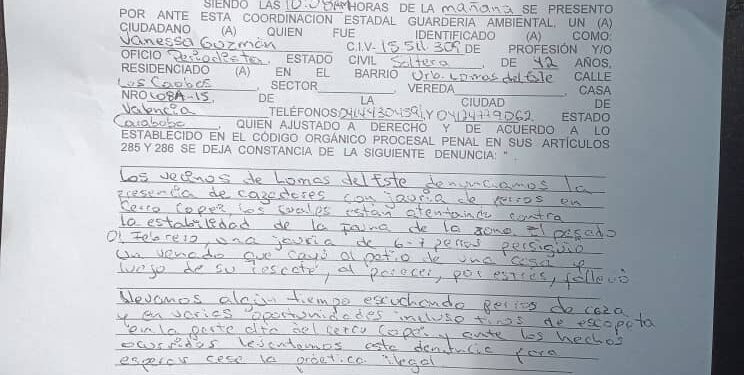 SIENDO LAS 10:00AM HORAS DE LA mañana SE PRESENTO
POR ANTE ESTA COORDINACION ESTADAL GUARDERIA AMBIENTAL, UN (A)
CIUDADANO (A) QUIEN FUE IDENTIFICADO (A) COMO:
Vanessa Guzmán C.I.V- 15 511 309 DE PROFESIÓN Y/O
OFICIO Periodista, ESTADO CIVIL Soltera DE 42 AÑOS.
RESIDENCIADO (A) EN EL BARRIO Urb. Lomas del Este CALLE
Los Caobos, SECTOR VEREDA CASA
NRO LO8A-15, DE LA CIUDAD DE
Valencia TELEFONOS Y ESTADO
Carabobo, QUIEN AJUSTADO A DERECHO Y DE ACUERDO A LO
ESTABLECIDO EN EL CÓDIGO ORGÁNICO PROCESAL PENAL EN SUS ARTÍCULOS
285 Y 286 SE DEJA CONSTANCIA DE LA SIGUIENTE DENUNCIA: "
Los vecinos de Lomas del Este denunciamos la
presencia de cazadores con jauría de perros en
Cerro Coper, los cuales están atentando contra
la estabilidad de la fauna de la zona. El pasado
01 Febrero, una jauría de 6-7 perros persiguió
un venado que cayó al patio de una casa y
luego de su rescate, al parecer, por estrés, falleció
Llevamos algún tiempo escuchando perros de caza
y en varias oportunidades incluso tiros de escopeta
en la parte alta del cerro Coper y ante los hechos
ocurridos levantamos esta denuncia para
esperar cese la práctica ilegal